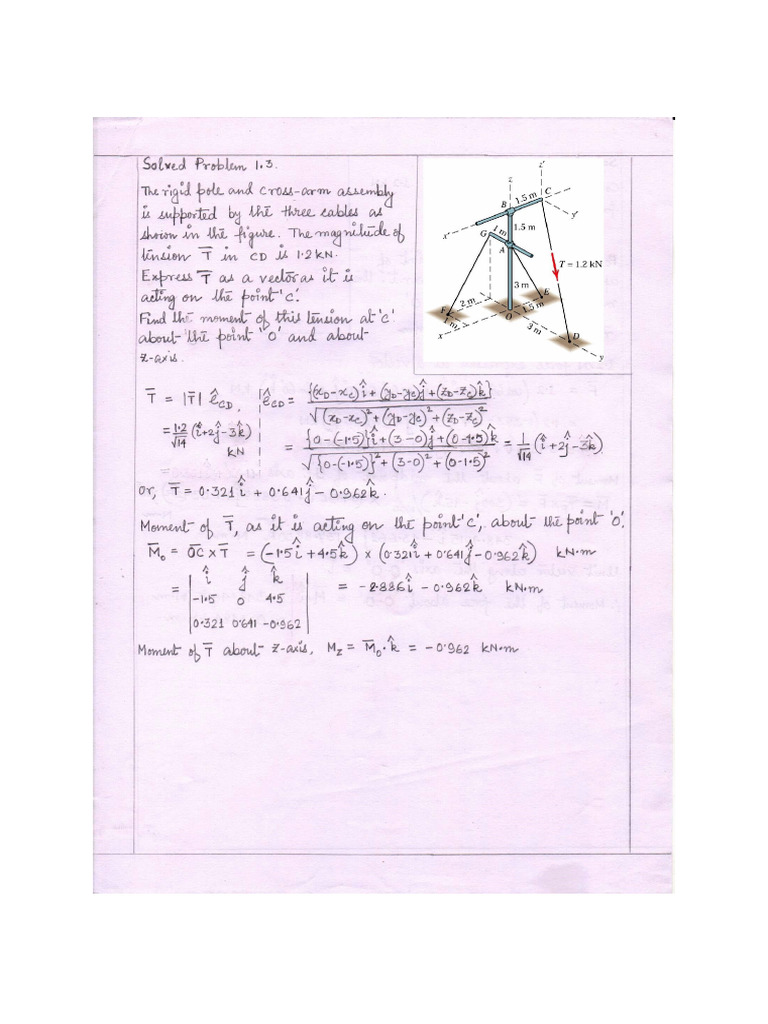 Solved Problem 1.3.
The rigid pole and cross-arm assembly
is supported by the three cables as
shown in the figure. The magnitude of
tension T̄ in CD is 1.2 kN.
Express T̄ as a vector as it is
acting on the point 'C'.
Find the moment of this tension at 'C'
about the point 'O' and about
z-axis.
z
z'
1.5 m
C
B
y'
x'
1 m
1.5 m
G
A
T = 1.2 kN
3 m
2 m
E
1.5 m
F
1 m
O
x
3 m
D
y
T̄ = |T̄| ê_CD,
ê_CD = {(x_D-x_C)î + (y_D-y_C)ĵ + (z_D-z_C)k̂} / √((x_D-x_C)² + (y_D-y_C)² + (z_D-z_C)²)
= 1.2/√14 (î+2ĵ-3k̂) kN
= {0-(-1.5)}î + (3-0)ĵ + (0-4.5)k̂ / √({0-(-1.5)}² + (3-0)² + (0-1.5)²) = 1/√14 (î+2ĵ-3k̂)
or, T̄ = 0.321 î + 0.641 ĵ - 0.962 k̂.
Moment of T̄, as it is acting on the point 'C', about the point 'O'.
M̄₀ = O̅C̅ × T̄ = (-1.5î + 4.5k̂) × (0.321î + 0.641ĵ - 0.962k̂) kN·m
= | î ĵ k̂ | = -2.886î - 0.962k̂ kN·m
-1.5 0 4.5
0.321 0.641 -0.962
Moment of T̄ about z-axis, M_z = M̄₀·k̂ = -0.962 kN·m